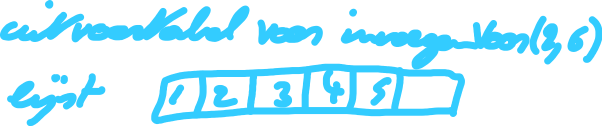 uitvoertabel voor invoegenVoor(3,6)
lijst 1 2 3 4 5